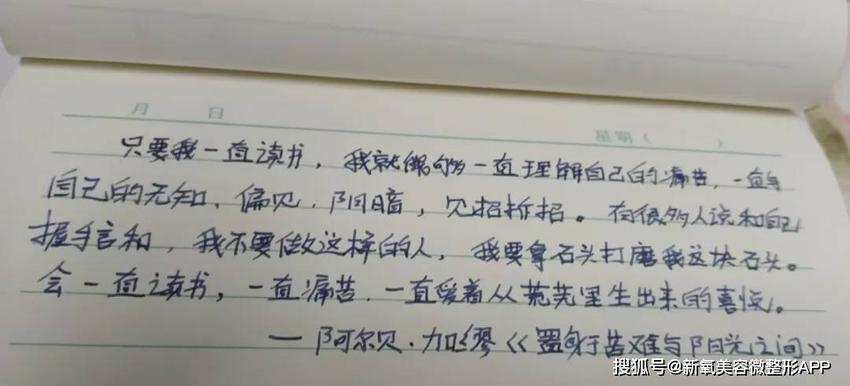 月 日
星期( )
只要我一直读书，我就能够一直理解自己的痛苦，一直与
自己的无知、偏见、阴暗，见招拆招。有很多人说和自己
握手言和，我不要做这样的人，我要拿石头打磨我这块石头。
会一直读书，一直痛苦，一直爱着从荒芜里生出来的喜悦。
——阿尔贝·加缪《置身于苦难与阳光之间》
搜狐号@新氧美容微整形APP